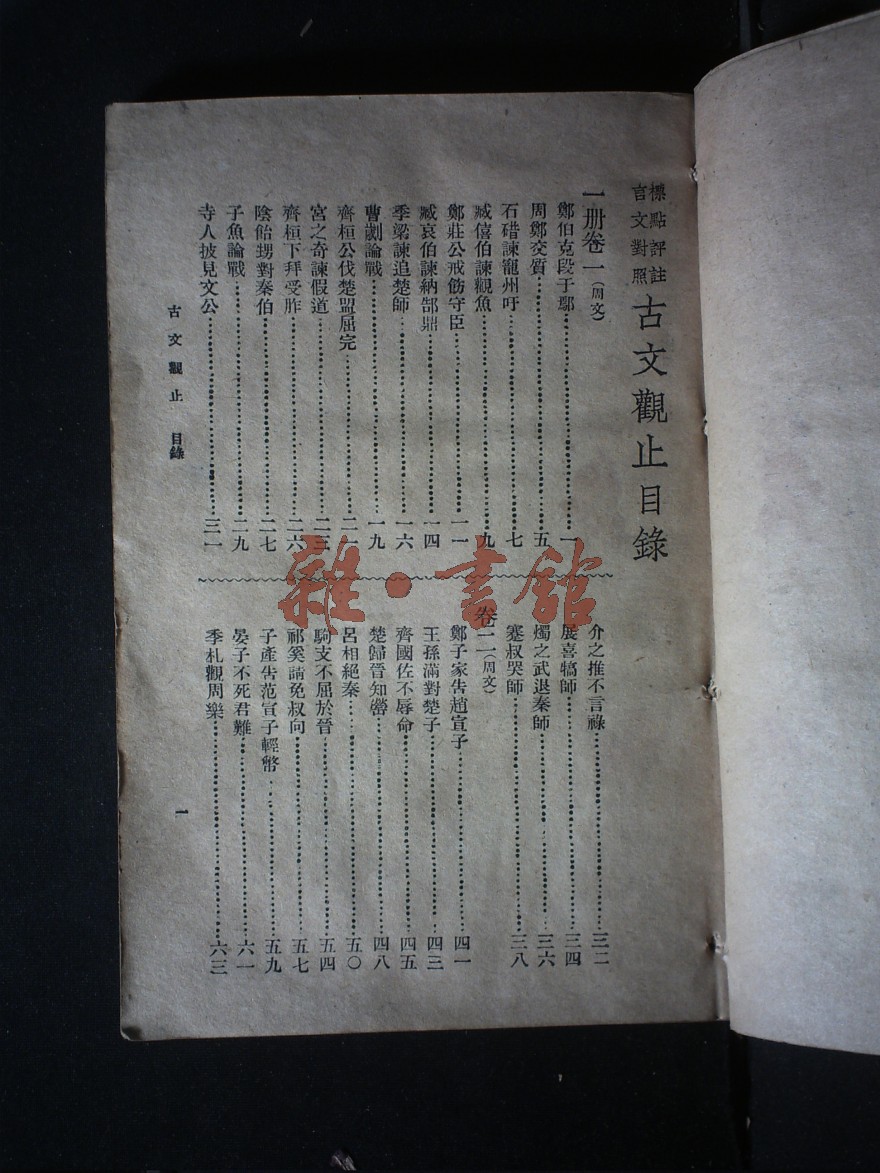 標點評註
言文對照
古文觀止目錄
一册卷一（周文）
鄭伯克段于鄢 一
周鄭交質 五
石碏諫寵州吁 七
臧僖伯諫觀魚 九
鄭莊公戒飭守臣 一一
臧哀伯諫納郜鼎 一四
季梁諫追楚師 一六
曹劌論戰 一九
齊桓公伐楚盟屈完 二一
宮之奇諫假道 二三
齊桓下拜受胙 二六
陰飴甥對秦伯 二七
子魚論戰 二九
寺人披見文公 三一
介之推不言祿 三二
展喜犒師 三四
燭之武退秦師 三六
蹇叔哭師 三八
卷二（周文）
鄭子家告趙宣子 四一
王孫滿對楚子 四三
齊國佐不辱命 四五
楚歸晉知罃 四八
呂相絕秦 五〇
駒支不屈於晉 五四
祁奚請免叔向 五七
子產告范宣子輕幣 五九
晏子不死君難 六一
季札觀周樂 六三
古文觀止 目錄
一
雜·書館